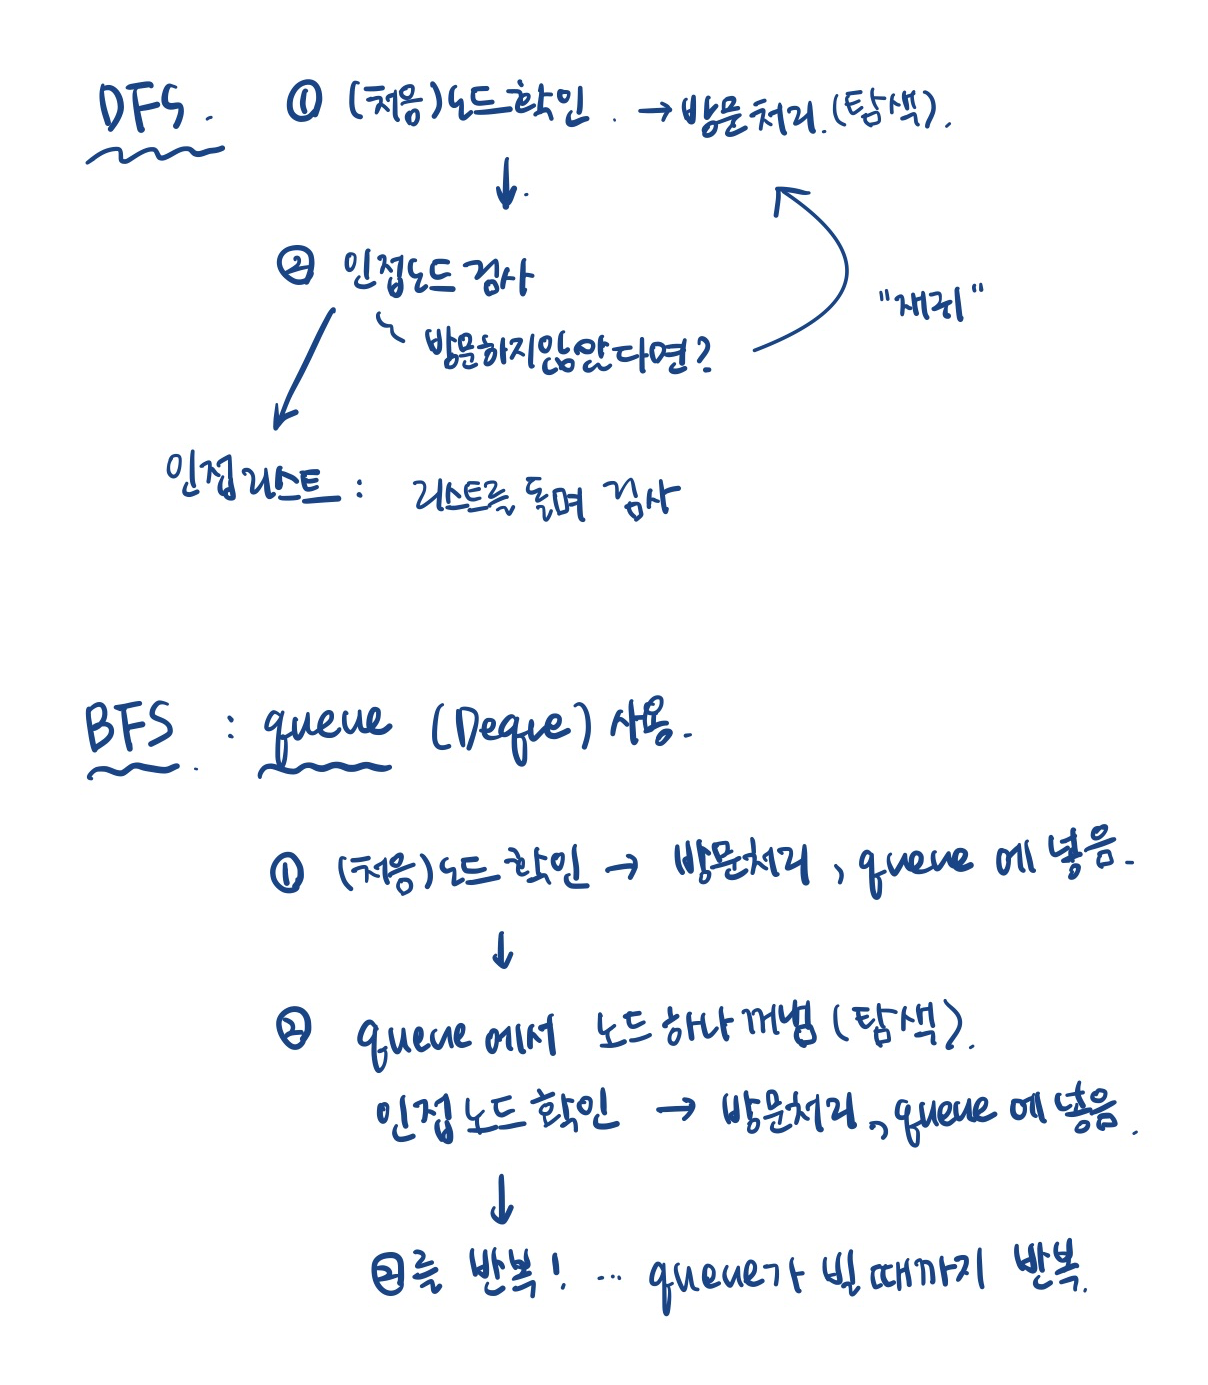 DFS. ① (처음)노드확인. → 방문처리.(탐색).
↓
② 인접노드 검사
방문하지않았다면?
"재귀"
인접리스트 : 리스트를 돌며 검사
BFS. : queue (Deque) 사용.
① (처음)노드 확인 → 방문처리, queue에 넣음.
↓
② queue에서 노드하나 꺼냄 (탐색).
인접노드 확인 → 방문처리, queue에 넣음.
↓
②를 반복! ... queue가 빌때까지 반복.